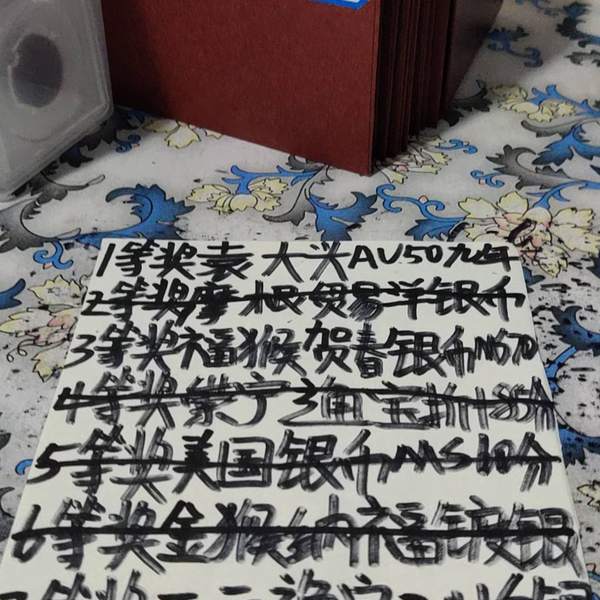 1等奖袁大头AU50九年
2等奖摩根贸易洋银币
3等奖福猴贺春银币MS70
4等奖崇宁通宝折十85分
5等奖美国银币MS 分
6等奖金猴纳福镀银
等奖